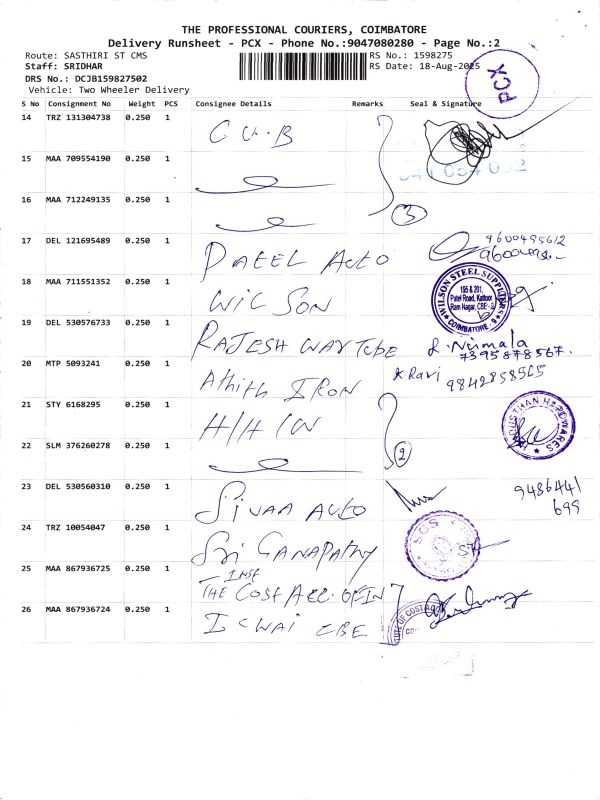 THE PROFESSIONAL COURIERS, COIMBATORE
Delivery Runsheet - PCX - Phone No.:9047080280 - Page No.:2
Route: SASTHIRI ST CMS
RS No.: 1598275
Staff: SRIDHAR
RS Date: 18-Aug-2025
DRS No.: DCJB159827502
Vehicle: Two Wheeler Delivery
PCX
S No Consignment No Weight PCS Consignee Details Remarks Seal & Signature
14 TRZ 131304738 0.250 1 C U.B
15 MAA 709554190 0.250 1
16 MAA 712249135 0.250 1 3
17 DEL 121695489 0.250 1 PATEL AUTO 9600495612
18 MAA 711551352 0.250 1 WILSON
WILSON STEEL SUPPLIERS
195 & 201,
Patel Road, Kattoor
Ram Nagar, CBE - 9
COIMBATORE - 9
19 DEL 530576733 0.250 1 RAJESH WAY TUBE R. Nirmala
7395878567.
20 MTP 5093241 0.250 1 Athith IRON Ravi 9842858565
21 STY 6168295 0.250 1 H/H/W
HARDWARES
22 SLM 376260278 0.250 1 2
23 DEL 530560310 0.250 1 SIVAA AUTO 9486441
699
24 TRZ 10054047 0.250 1 Sri GANAPATHY
SGS
25 MAA 867936725 0.250 1 THE COST ACC. OF IN
INST
26 MAA 867936724 0.250 1 ICWAI CBE